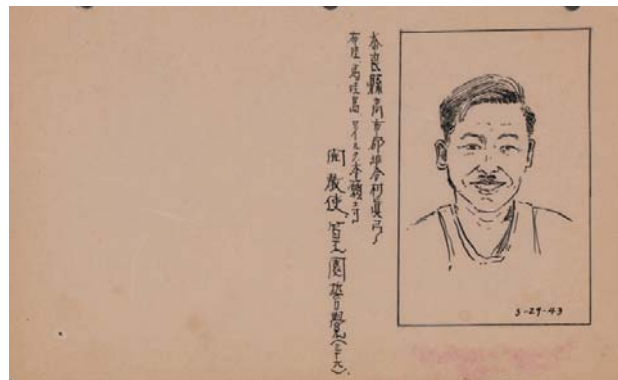 奈良縣高市郡坂合村眞弓
布哇、馬哇島 ワイルク本願寺
開教使、園誓覺(三十六)
3-29-43